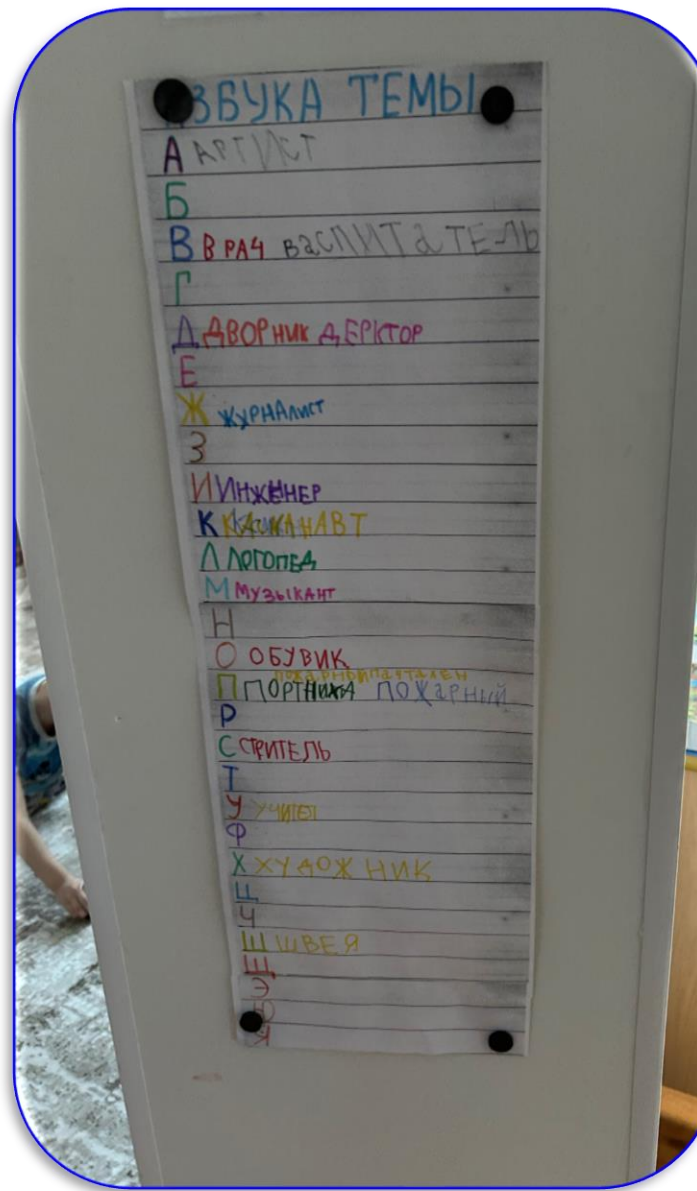 АЗБУКА ТЕМЫ
А АРТИСТ
Б
В ВРАЧ ВаСПИТаТЕЛЬ
Г
Д ДВОРНИК ДЕРКТОР
Е
Ж ЖУРНАЛИСТ
З
И ИНЖЕНЕР
К КАСМАНАВТ
Л ЛОГОПЕД
М МУЗЫКАНТ
Н
О ОБУВИК
ПОЖАРНЫЙ ПАЧТАЛЕН
П ПОРТНИХА ПОЖаРНИЙ
Р
С СТРИТЕЛЬ
Т
У УЧИТЕЛ
Ф
Х ХУДОЖНИК
Ц
Ч
Ш ШВЕЯ
Щ
Э
Ю
Я